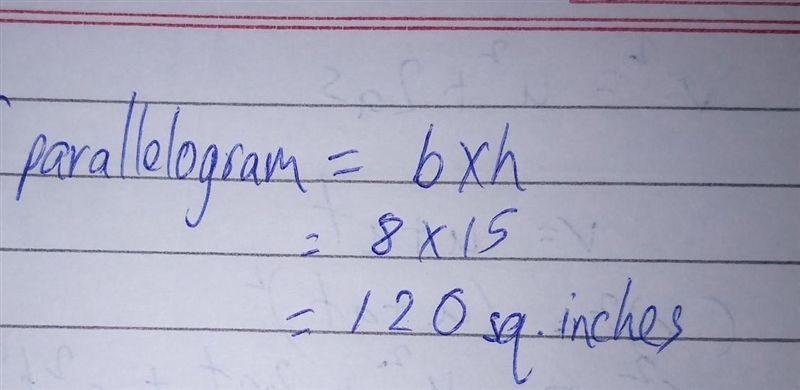 parallelogram = b x h
= 8 x 15
= 120 sq. inches